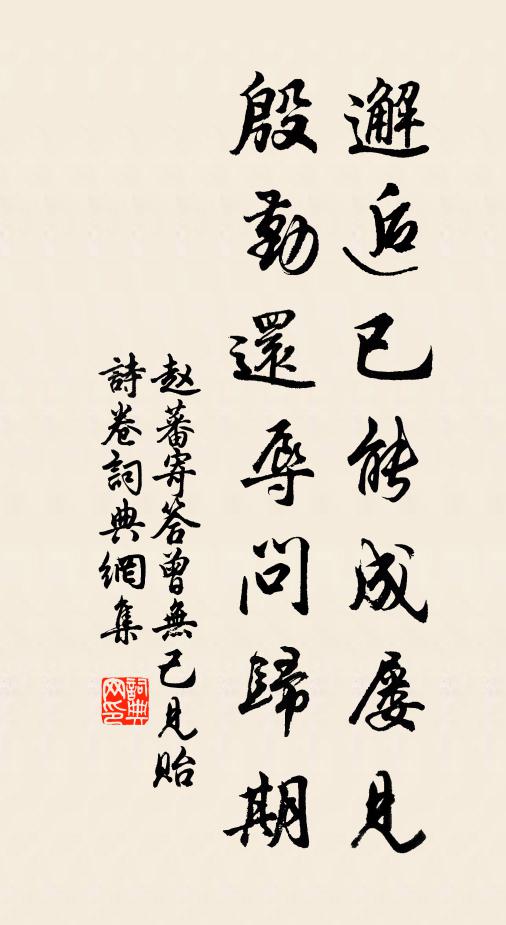 邂逅已能成屡見
殷勤還辱問歸期
赵蕃寄答曾無已見貽
詩卷詞典網集
詞典
网印